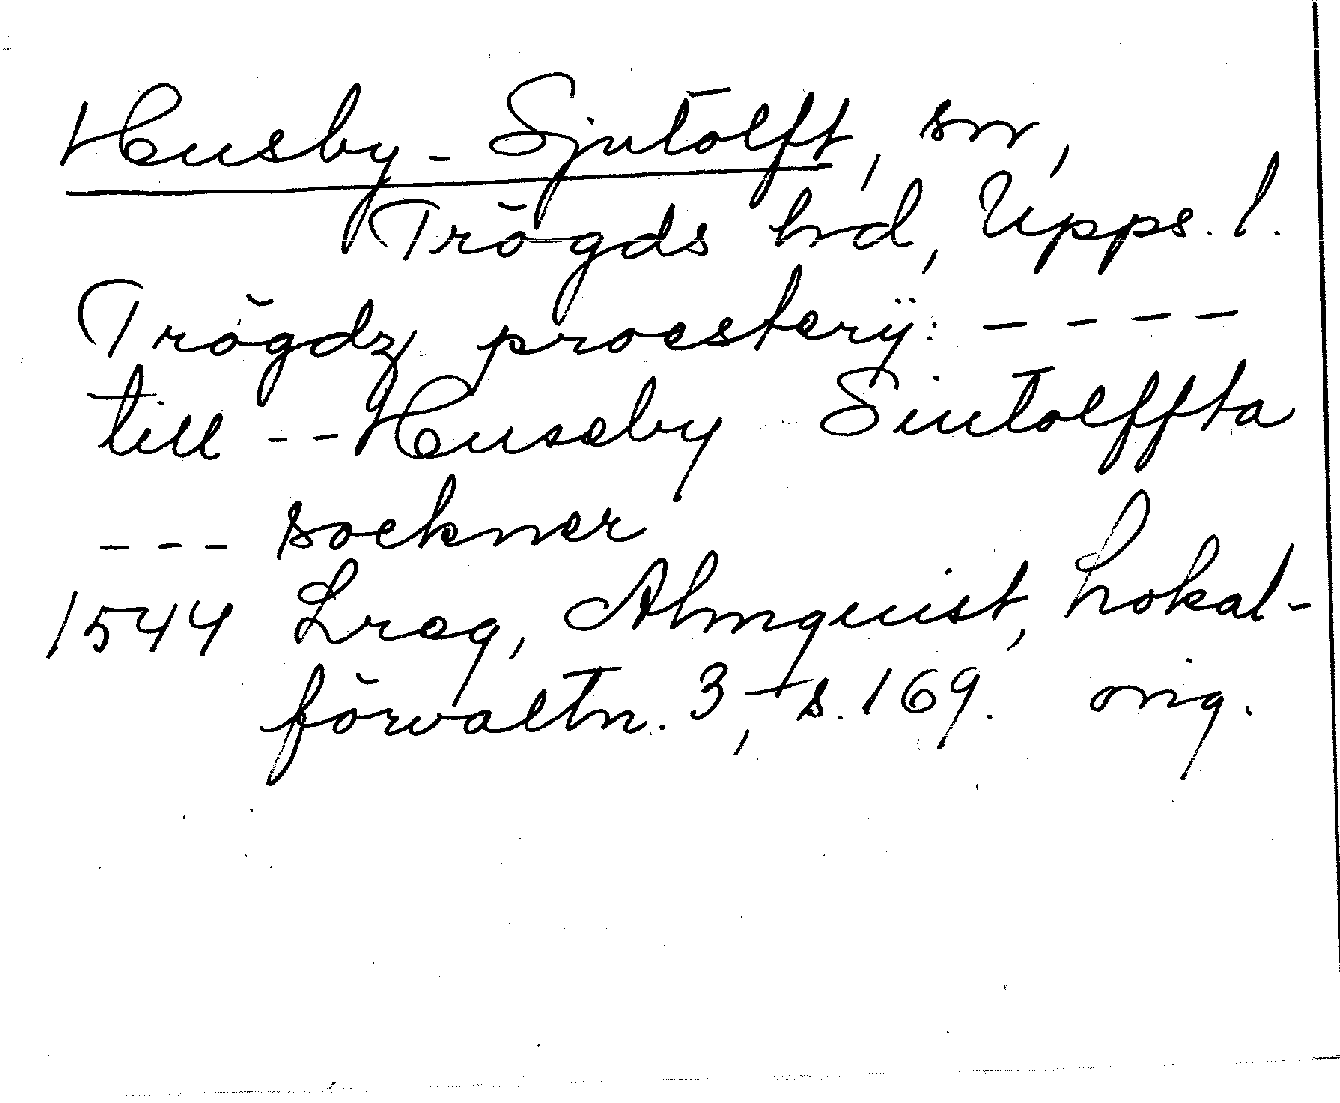 Husby-Sjutolft, sn,
Trögds hd, Upps. l.
Trögdz proesterÿ: ----
till -- Huseby Siutolffta
--- sockner
1544 Lreg, Almquist, Lokal-
förvaltn. 3, s. 169. orig.